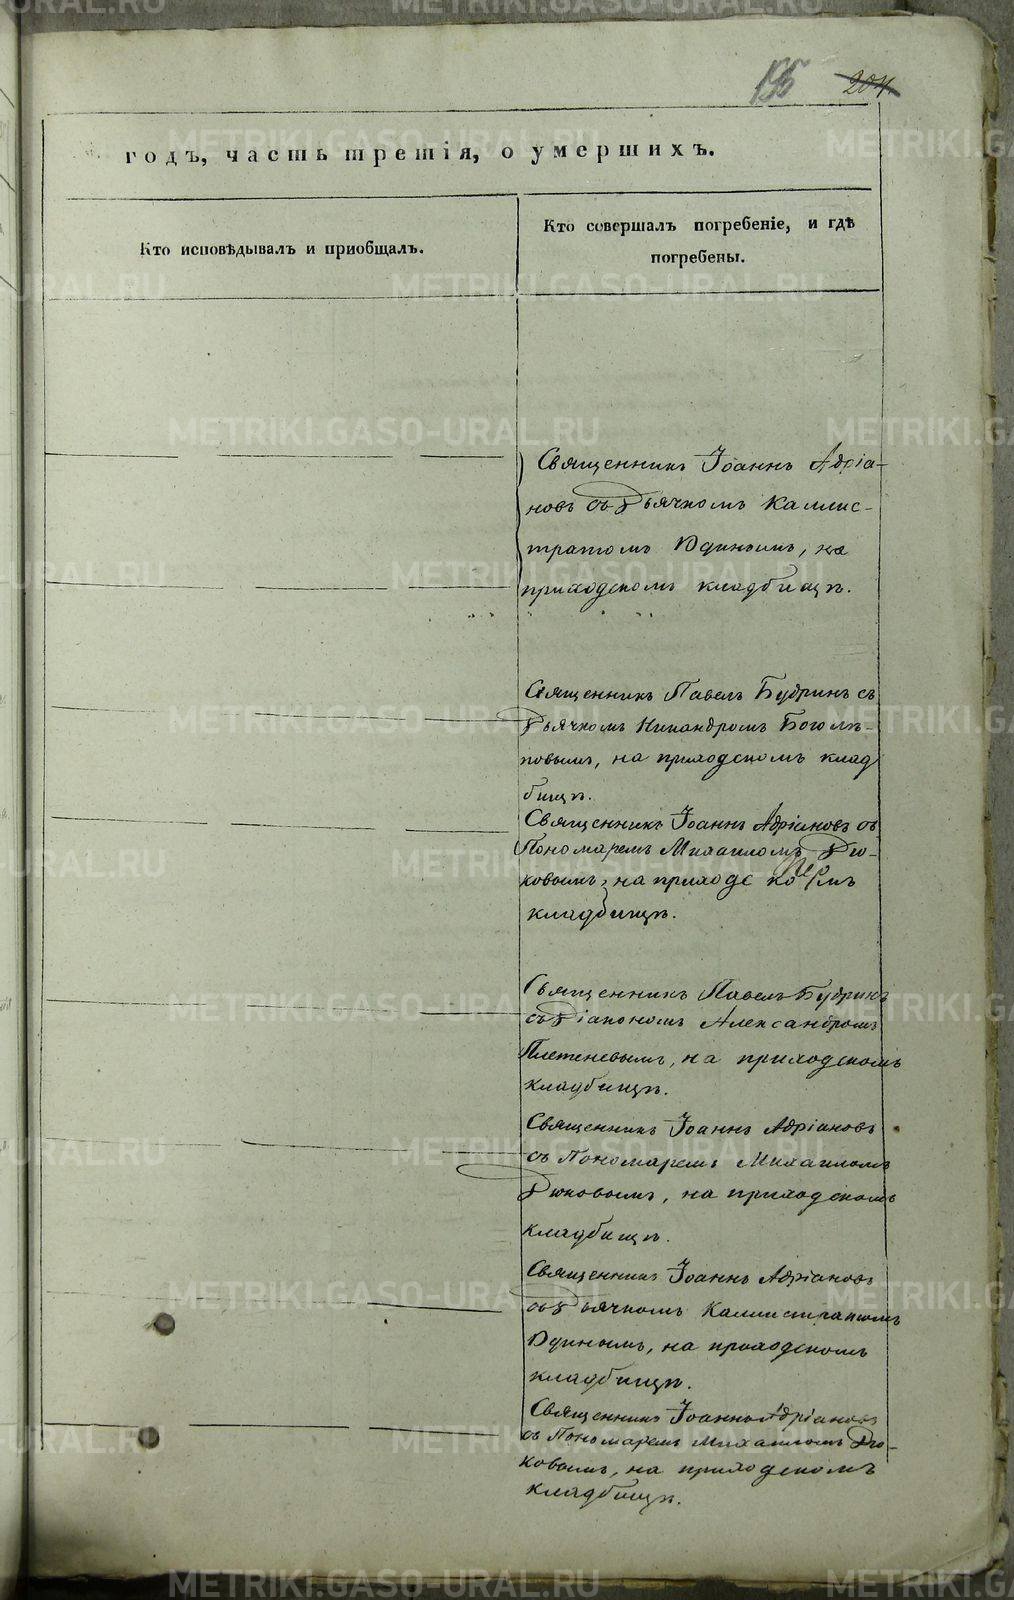 195 204
годъ, часть третія, о умершихъ.
Кто исповѣдывалъ и пріобщалъ.
Кто совершалъ погребеніе, и гдѣ
погребены.
Священникъ Іоаннъ Адріа-
новъ съ Дьячкомъ Каллис-
тратомъ Юдинымъ, на
приходскомъ кладбищѣ.
Священникъ Павелъ Будринъ съ
Дьячкомъ Никандромъ Боголѣ-
повымъ, на приходскомъ клад
бищѣ.
Священникъ Іоаннъ Адріановъ съ
Пономаремъ Михаиломъ Дю-
ковымъ, на приходскомъ
кладбищѣ.
Священникъ Павелъ Будринъ
съ Діакономъ Александромъ
Плетеневымъ, на приходскомъ
кладбищѣ.
Священникъ Іоаннъ Адріановъ
съ Пономаремъ Михаиломъ
Дюковымъ, на приходскомъ
кладбищѣ.
Священникъ Іоаннъ Адріановъ
съ Дьячкомъ Каллистратомъ
Юдинымъ, на приходскомъ
кладбищѣ.
Священникъ Іоаннъ Адріановъ
съ Пономаремъ Михаиломъ Дю-
ковымъ, на приходскомъ
кладбищѣ.
METRIKI.GASO-URAL.RU